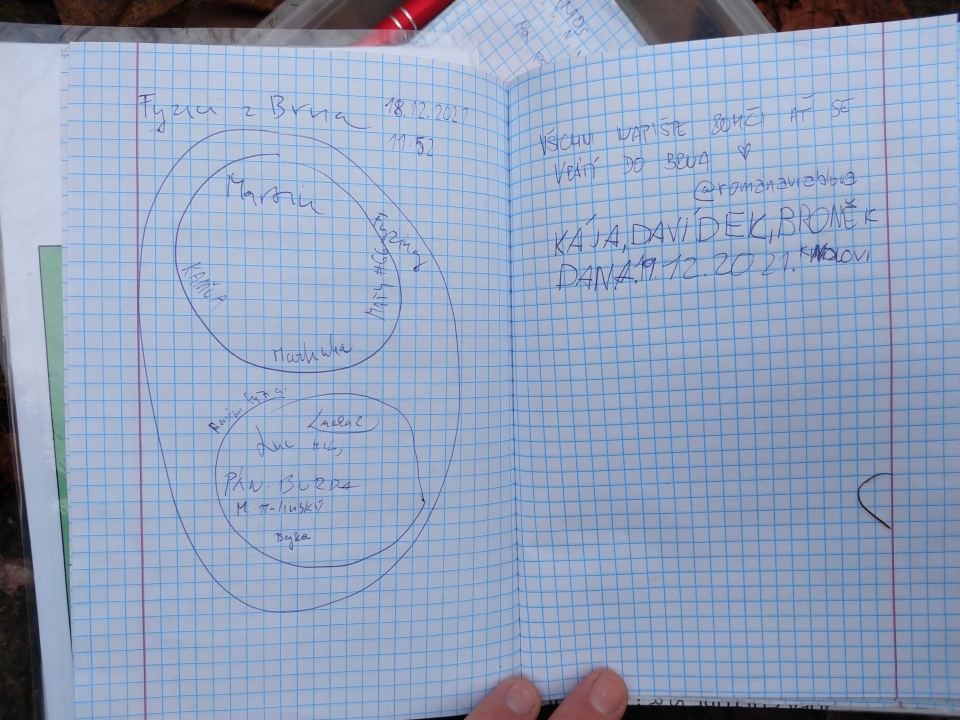 Fyzici z Brna 18.12.2021
11:52
Martin
Fyzing
KAMČA
MATY #CSG
Martinka
Fyzici
Luc
PAN. BURDA
Bejka
VŠICHNI NAPIŠTE ROMČI AŤ SE
VRÁTÍ DO BRNA ♥
@romanavrablova
KÁJA, DAVÍDEK, BRONĚK
DANA 19.12.2021. KNOLOVI